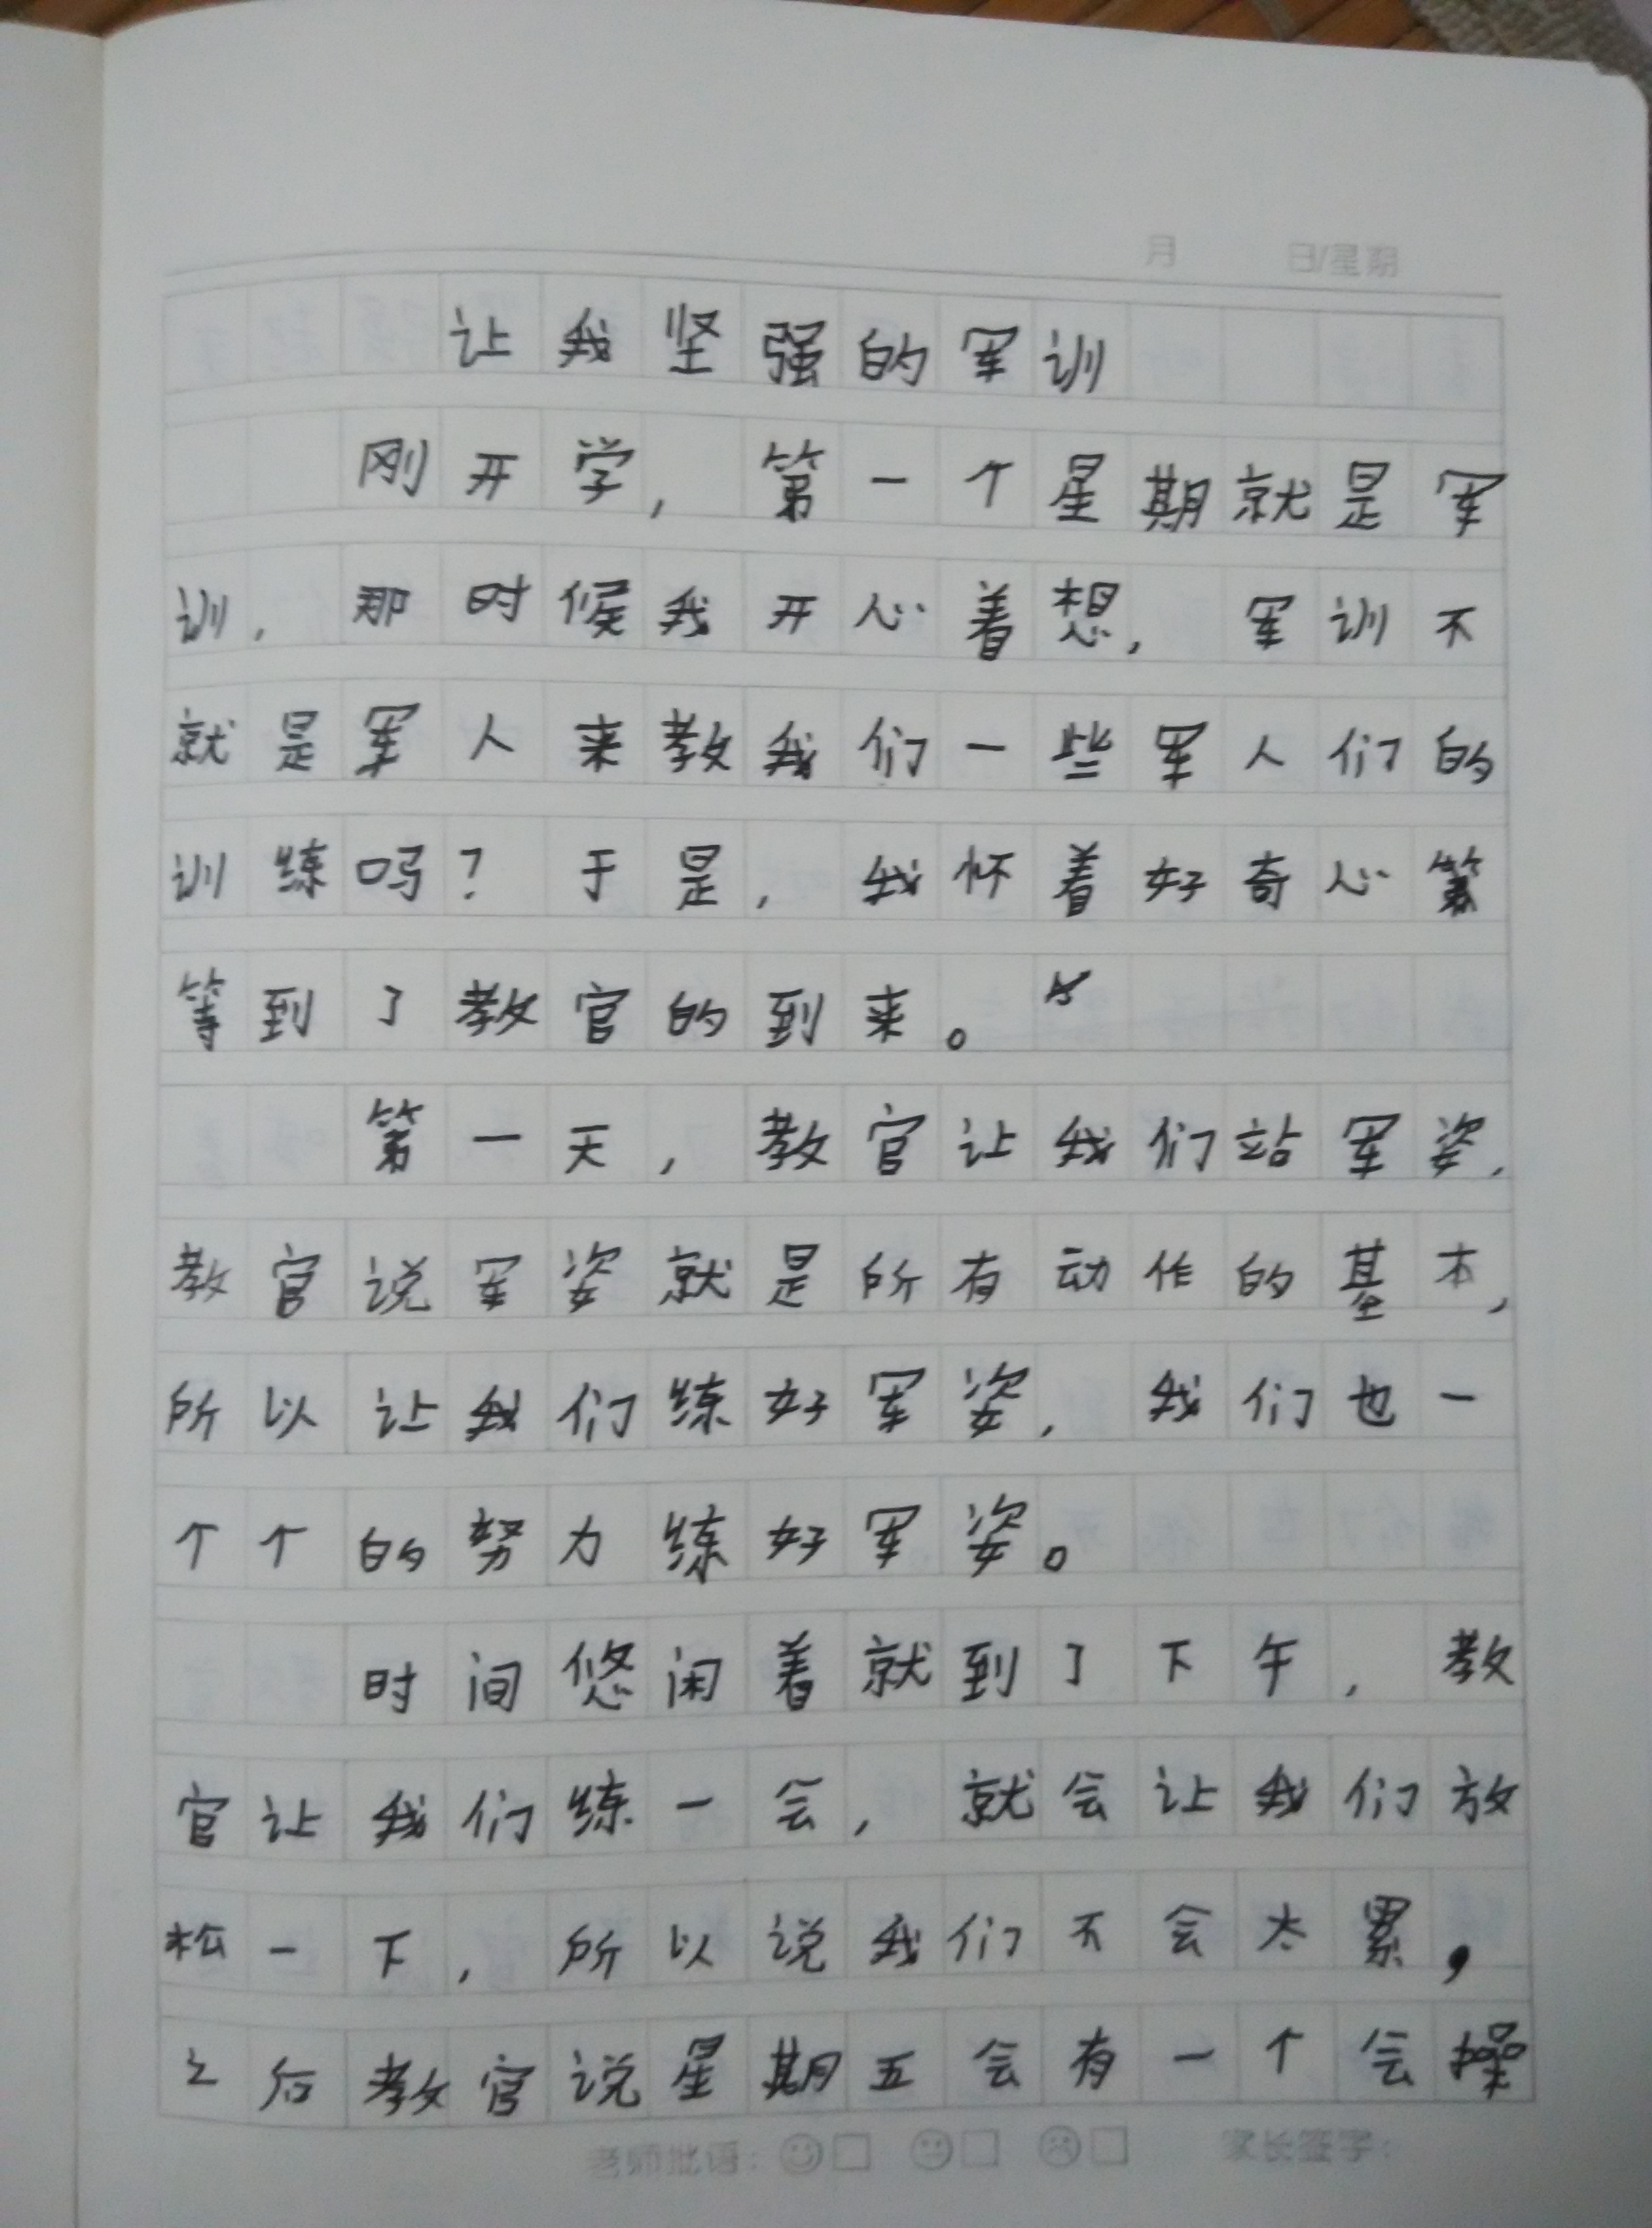 月 日/星期
让我坚强的军训
刚开学，第一个星期就是军
训，那时候我开心着想，军训不
就是军人来教我们一些军人们的
训练吗？于是，我怀着好奇心
等到了教官的到来。
第一天，教官让我们站军姿，
教官说军姿就是所有动作的基本，
所以让我们练好军姿，我们也一
个个的努力练好军姿。
时间悠闲着就到了下午，教
官让我们练一会，就会让我们放
松一下，所以说我们不会太累，
之后教官说星期五会有一个会操
老师批语： 家长签字：